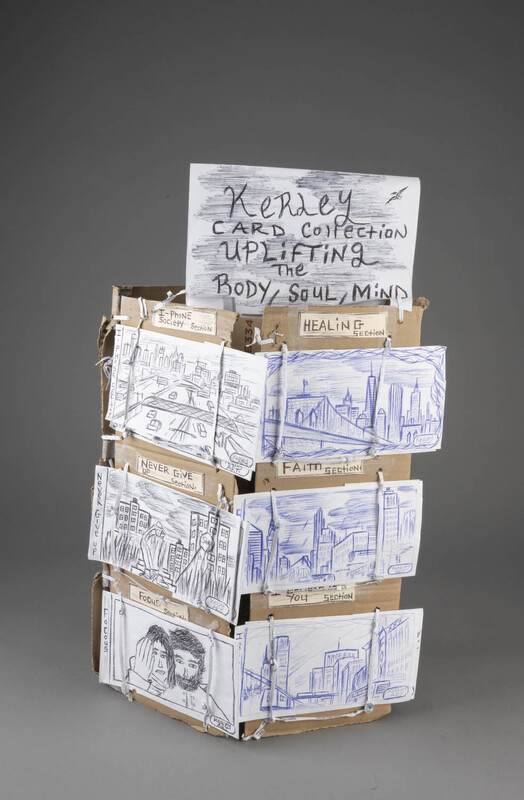 KERLEY
CARD COLLECTION
UPLIFTING
THE
BODY, SOUL, MIND
I-PHONE
SOCIETY SECTION
HEALING
SECTION
NEVER GIVE
UP
SECTION
FAITH SECTION
NEVER GIVE UP
FOCUS
SECTION
YOU SECTION
FOCUS